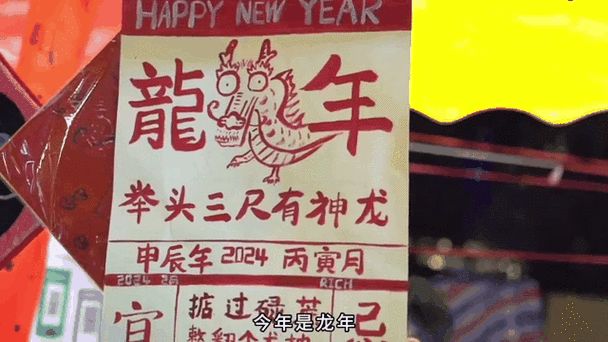 HAPPY NEW YEAR
龍年
举头三尺有神龙
申辰年 2024 丙寅月
2024 2月 RICH
宜 掂过碌蔗 忌
今年是龙年